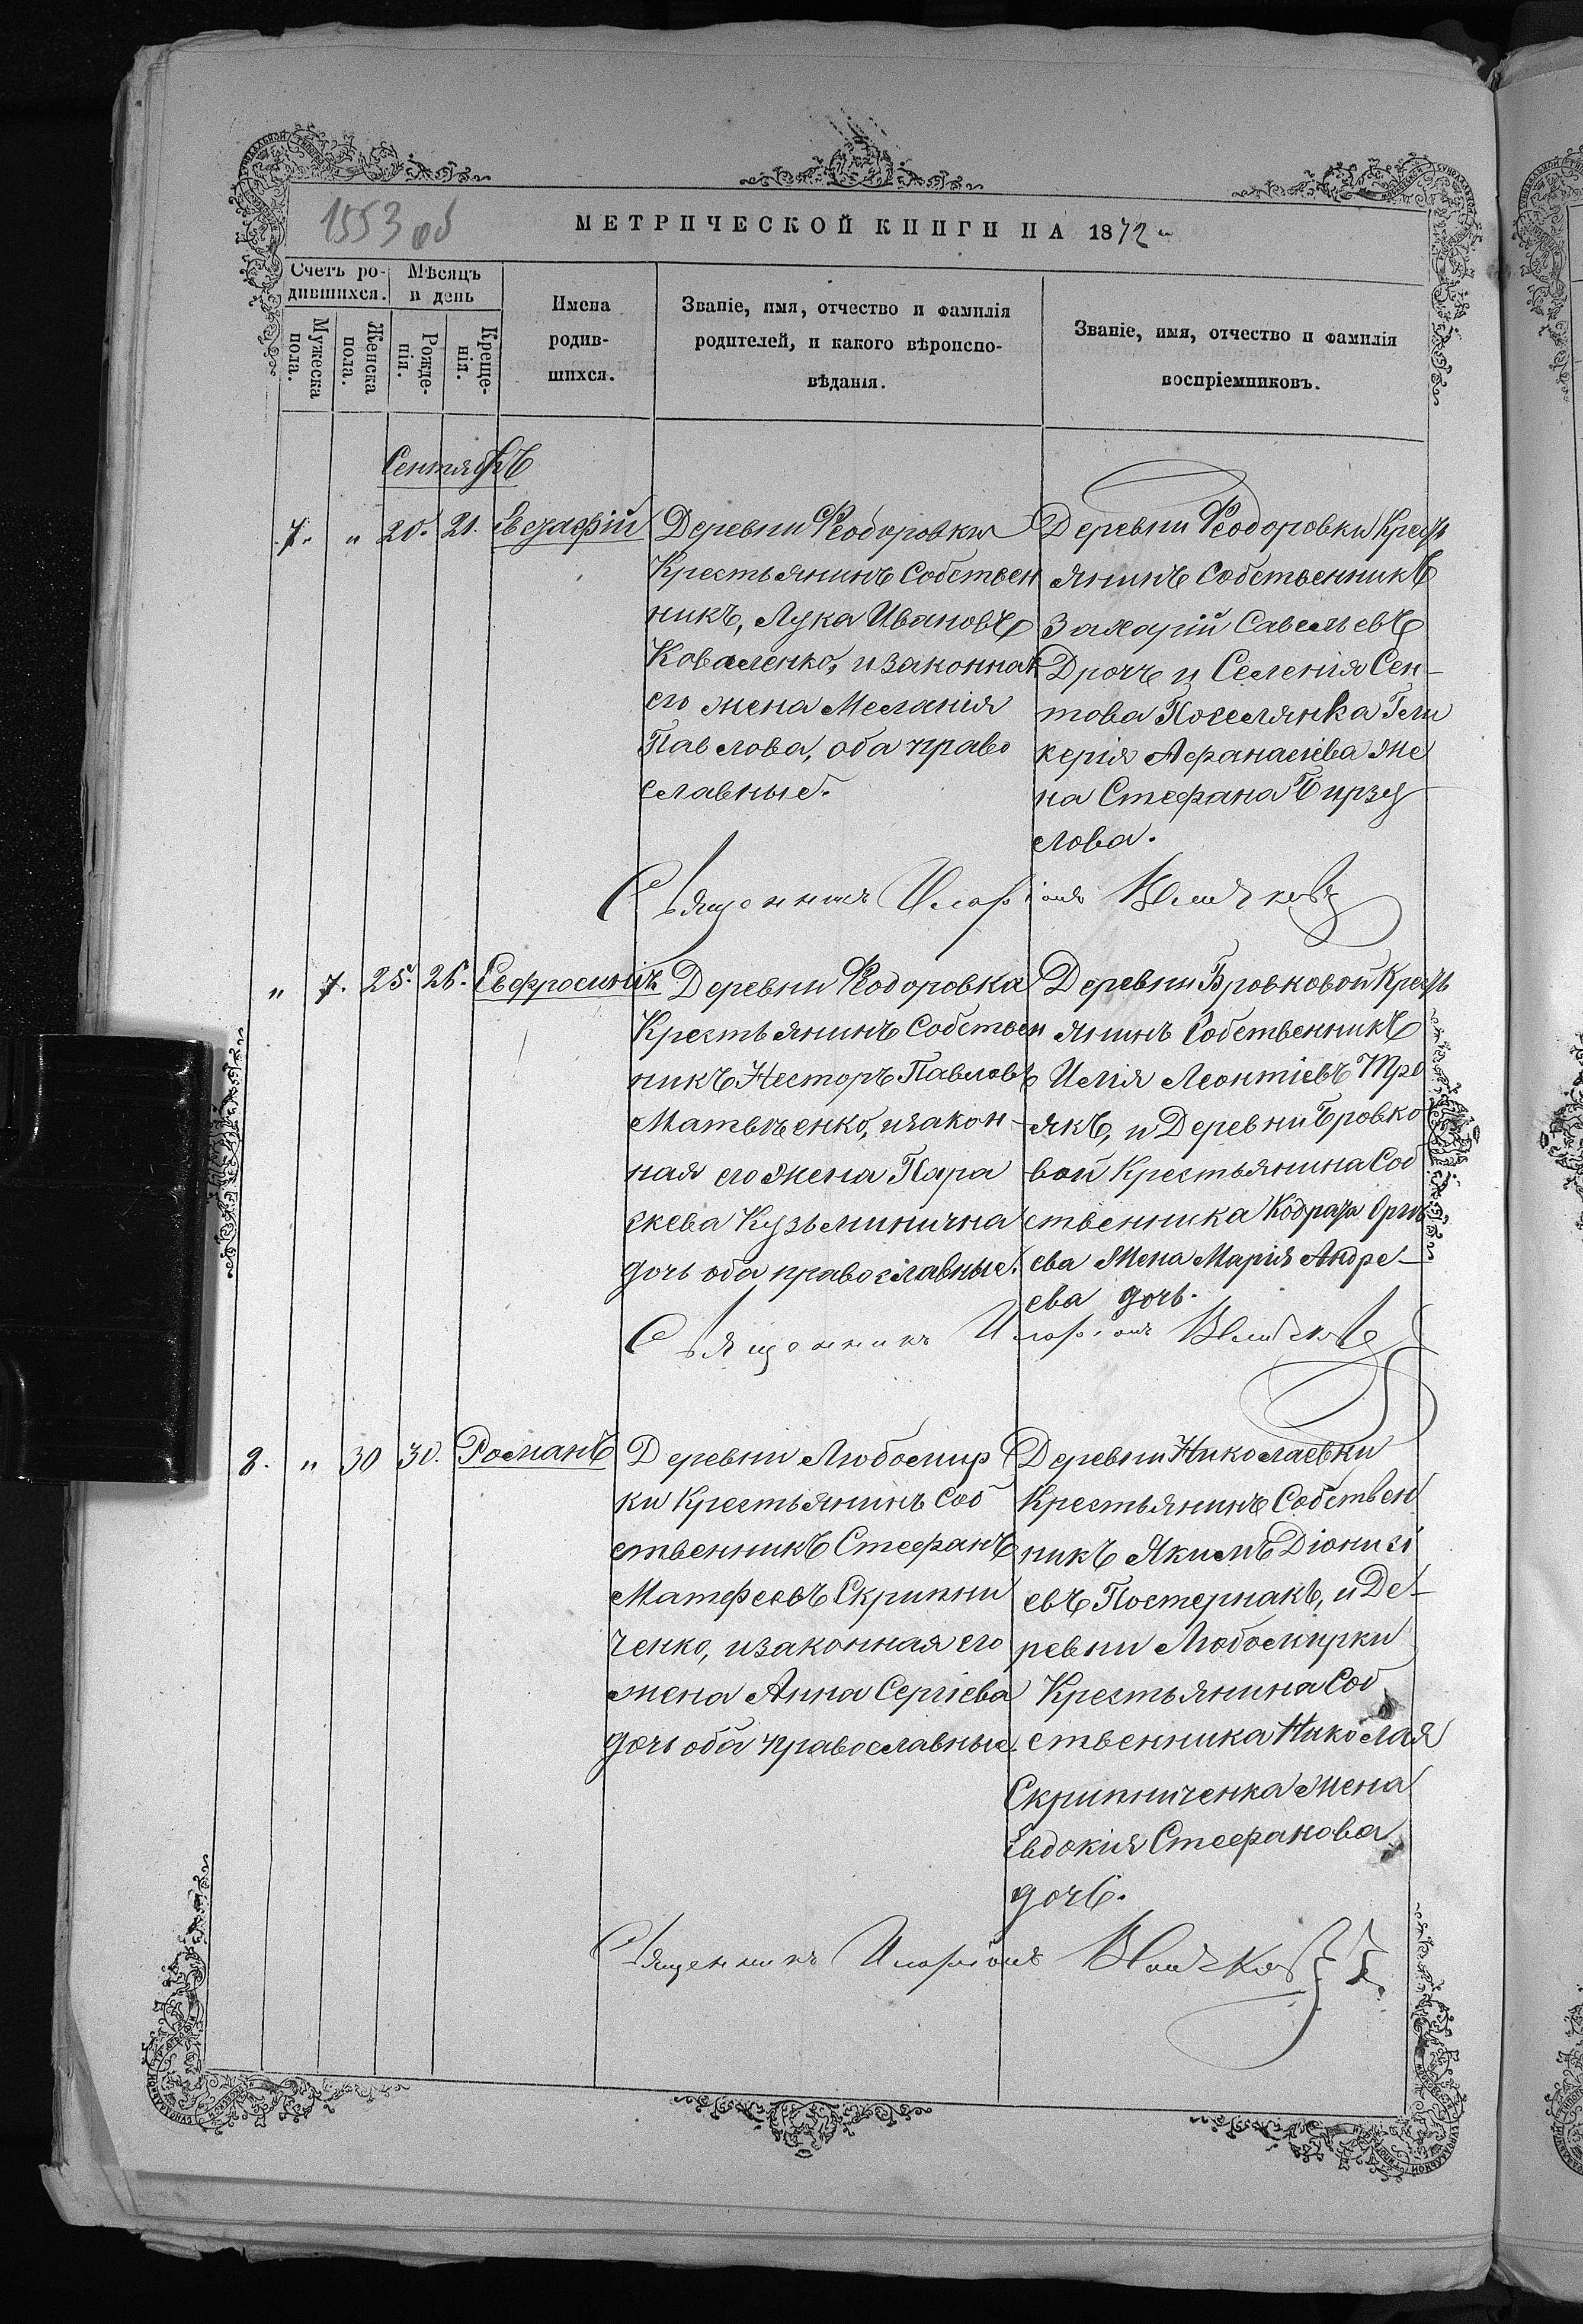 1553 об
МЕТРИЧЕСКОЙ КНИГИ НА 1872
Счетъ родившихся.
Мѣсяцъ и день
Мужеска пола.
Женска пола.
Рожденія.
Крещенія.
Имена
родив-
шихся.
Званіе, имя, отчество и фамилія
родителей, и какого вѣроиспо-
вѣданія.
Званіе, имя, отчество и фамилія
воспріемниковъ.
Сентябрь
7. " 20. 21. Евстафій
Деревни Ѳеодоровки
Крестьянинъ Собствен
никъ, Лука Ивановъ
Коваленко, и законная
его жена Меланія
Павлова, оба право
славные.
Деревни Ѳеодоровки Крест
янинъ Собственникъ
Захарій Савельевъ
Дрочъ и Селенія Сен-
това Поселянка Гли
керія Афанасіева же
на Стефана Бирзу
лова.
Священникъ Иларіонъ
" 7. 25. 26. Евфросинія
Деревни Ѳеодоровка
Крестьянинъ Собствен
никъ Несторъ Павловъ
Матвѣенко, и закон-
ная его жена Пара
скева Кузьминична
дочь оба православные.
Деревни Бровковой Крест
янинъ Собственникъ
Илія Леонтіевъ Тре
якъ, и Деревни Бровко
вой Крестьянина Соб
ственника Кодрата
ева жена Марія Андре-
ева дочь.
Священникъ Иларіонъ
8. " 30 30. Романъ
Деревни Любомир
ки Крестьянинъ Соб
ственникъ Стефанъ
Матфеевъ Скрипни
ченко, и законная его
жена Анна Сергіева
дочь оба православные.
Деревни Николаевки
Крестьянинъ Собствен
никъ Якимъ Діонисі
евъ Постернакъ, и Де-
ревни Любомирки
Крестьянина Соб
ственника Николая
Скрипниченка жена
Евдокія Стефанова
дочь.
Священникъ Иларіонъ